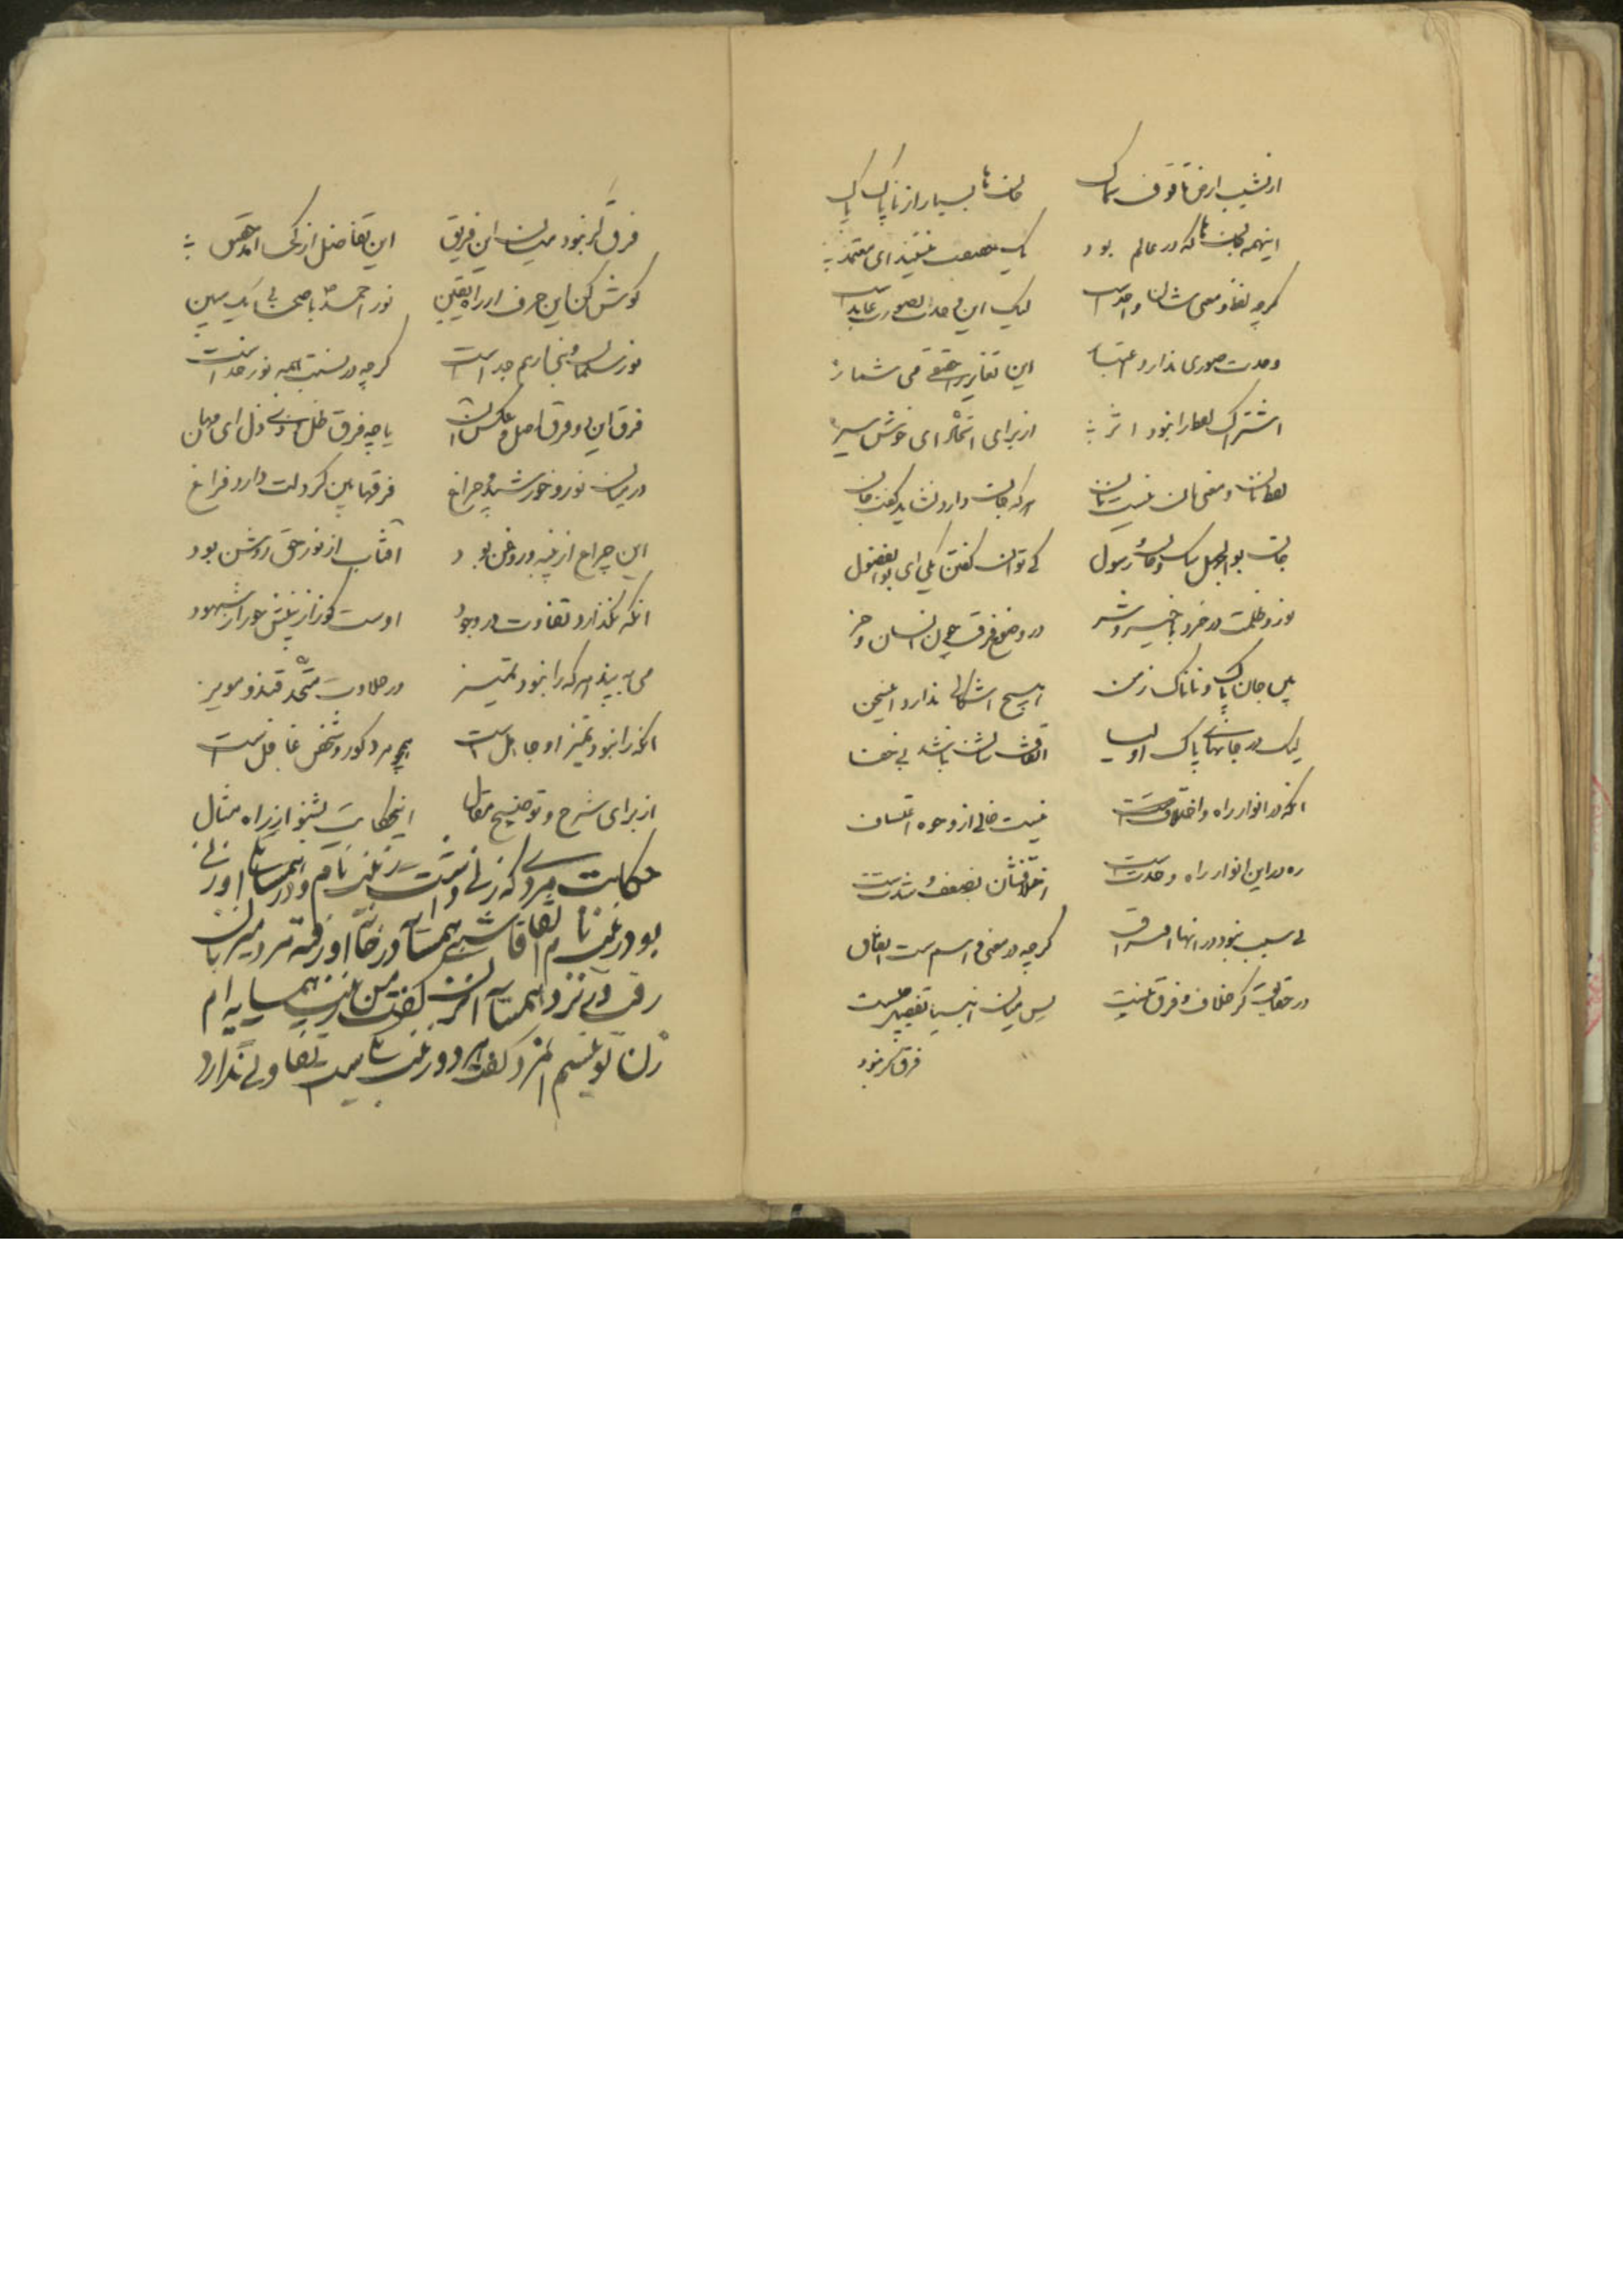 از نشیب ارض تا فوق سماک جان‌ها بسیار از ناپاک پاک
اینهمه جان‌ها که در عالم بود یک نیند ای معتمد
گرچه لفظ و معنی شان واحد است لیک این وحدت بصورت عاید است
وحدت صوری ندارد اعتبار این تغایر را حقیقی می شمار
اشتراک لفظ را نبود اثر از برای اتحاد ای خوش سیر
لفظ نان و معنی نان نیست نان هر که جان دارد نشاید گفت جان
جان بوالجهل پاک و جان رسول کی توان گفتن یکی ای بوالفضول
نور و ظلمت در خرد با خیر و شر در وضوح فرق چون انسان و خر
پس جان پاک و ناپاک زمن هیچ اشکالی ندارد اینسخن
لیک در جانهای پاک اولیا اتفاقشان نباشد بی خفا
آنکه در انوار راه واختلافست نیست خالی از وجوه
ره در این انوار راه وحدت است اختلافشان بضعف و شدت است
بی سبب نبود در انها افتراق گرچه در معنی و اسم است اتفاق
در حقایق گر خلاف و فرق نیست پس میان انبیا تفضیل چیست
فرق گر نبود
فرق گر نبود میان این فریق این تفاضل از کجا آمد
گوش کن این حرف را از راه یقین نور احمد با صحابی یک مبین
نور سلمان و بخار هم جداست گرچه در نسبت همه نور خداست
فرق این دو فرق اصل و عکس دان یا چه فرق ظل و ذی ظل ای مهان
در میان نور و خورشید و چراغ فرقها بین گر دلت دارد فراغ
این چراغ از پنبه و روغن بود آفتاب از نور حق روشن بود
آنکه نگذارد تفاوت در وجود اوست کور از بینش دور از شهود
می نه بیند هر که را نبود تمیز در حلاوت متحد قند و مویز
آنکه را نبود تمیز او جاهل است همچو مرد کور و شخص غافل است
از برای شرح و توضیح مقال اینحکایت بشنو از راه مثال
حکایت مردی که زنی داشت زینب نام و در همسایه او زنی
بود زینب نام اتفاقا شبی همسایه در خانه او رفته مرد میزبان
رفت در نزد همسایه آن زن گفت من زینب همسایه ام
زن تو نیستم آنمرد گفت هر دو زینب نام است تفاوتی ندارد